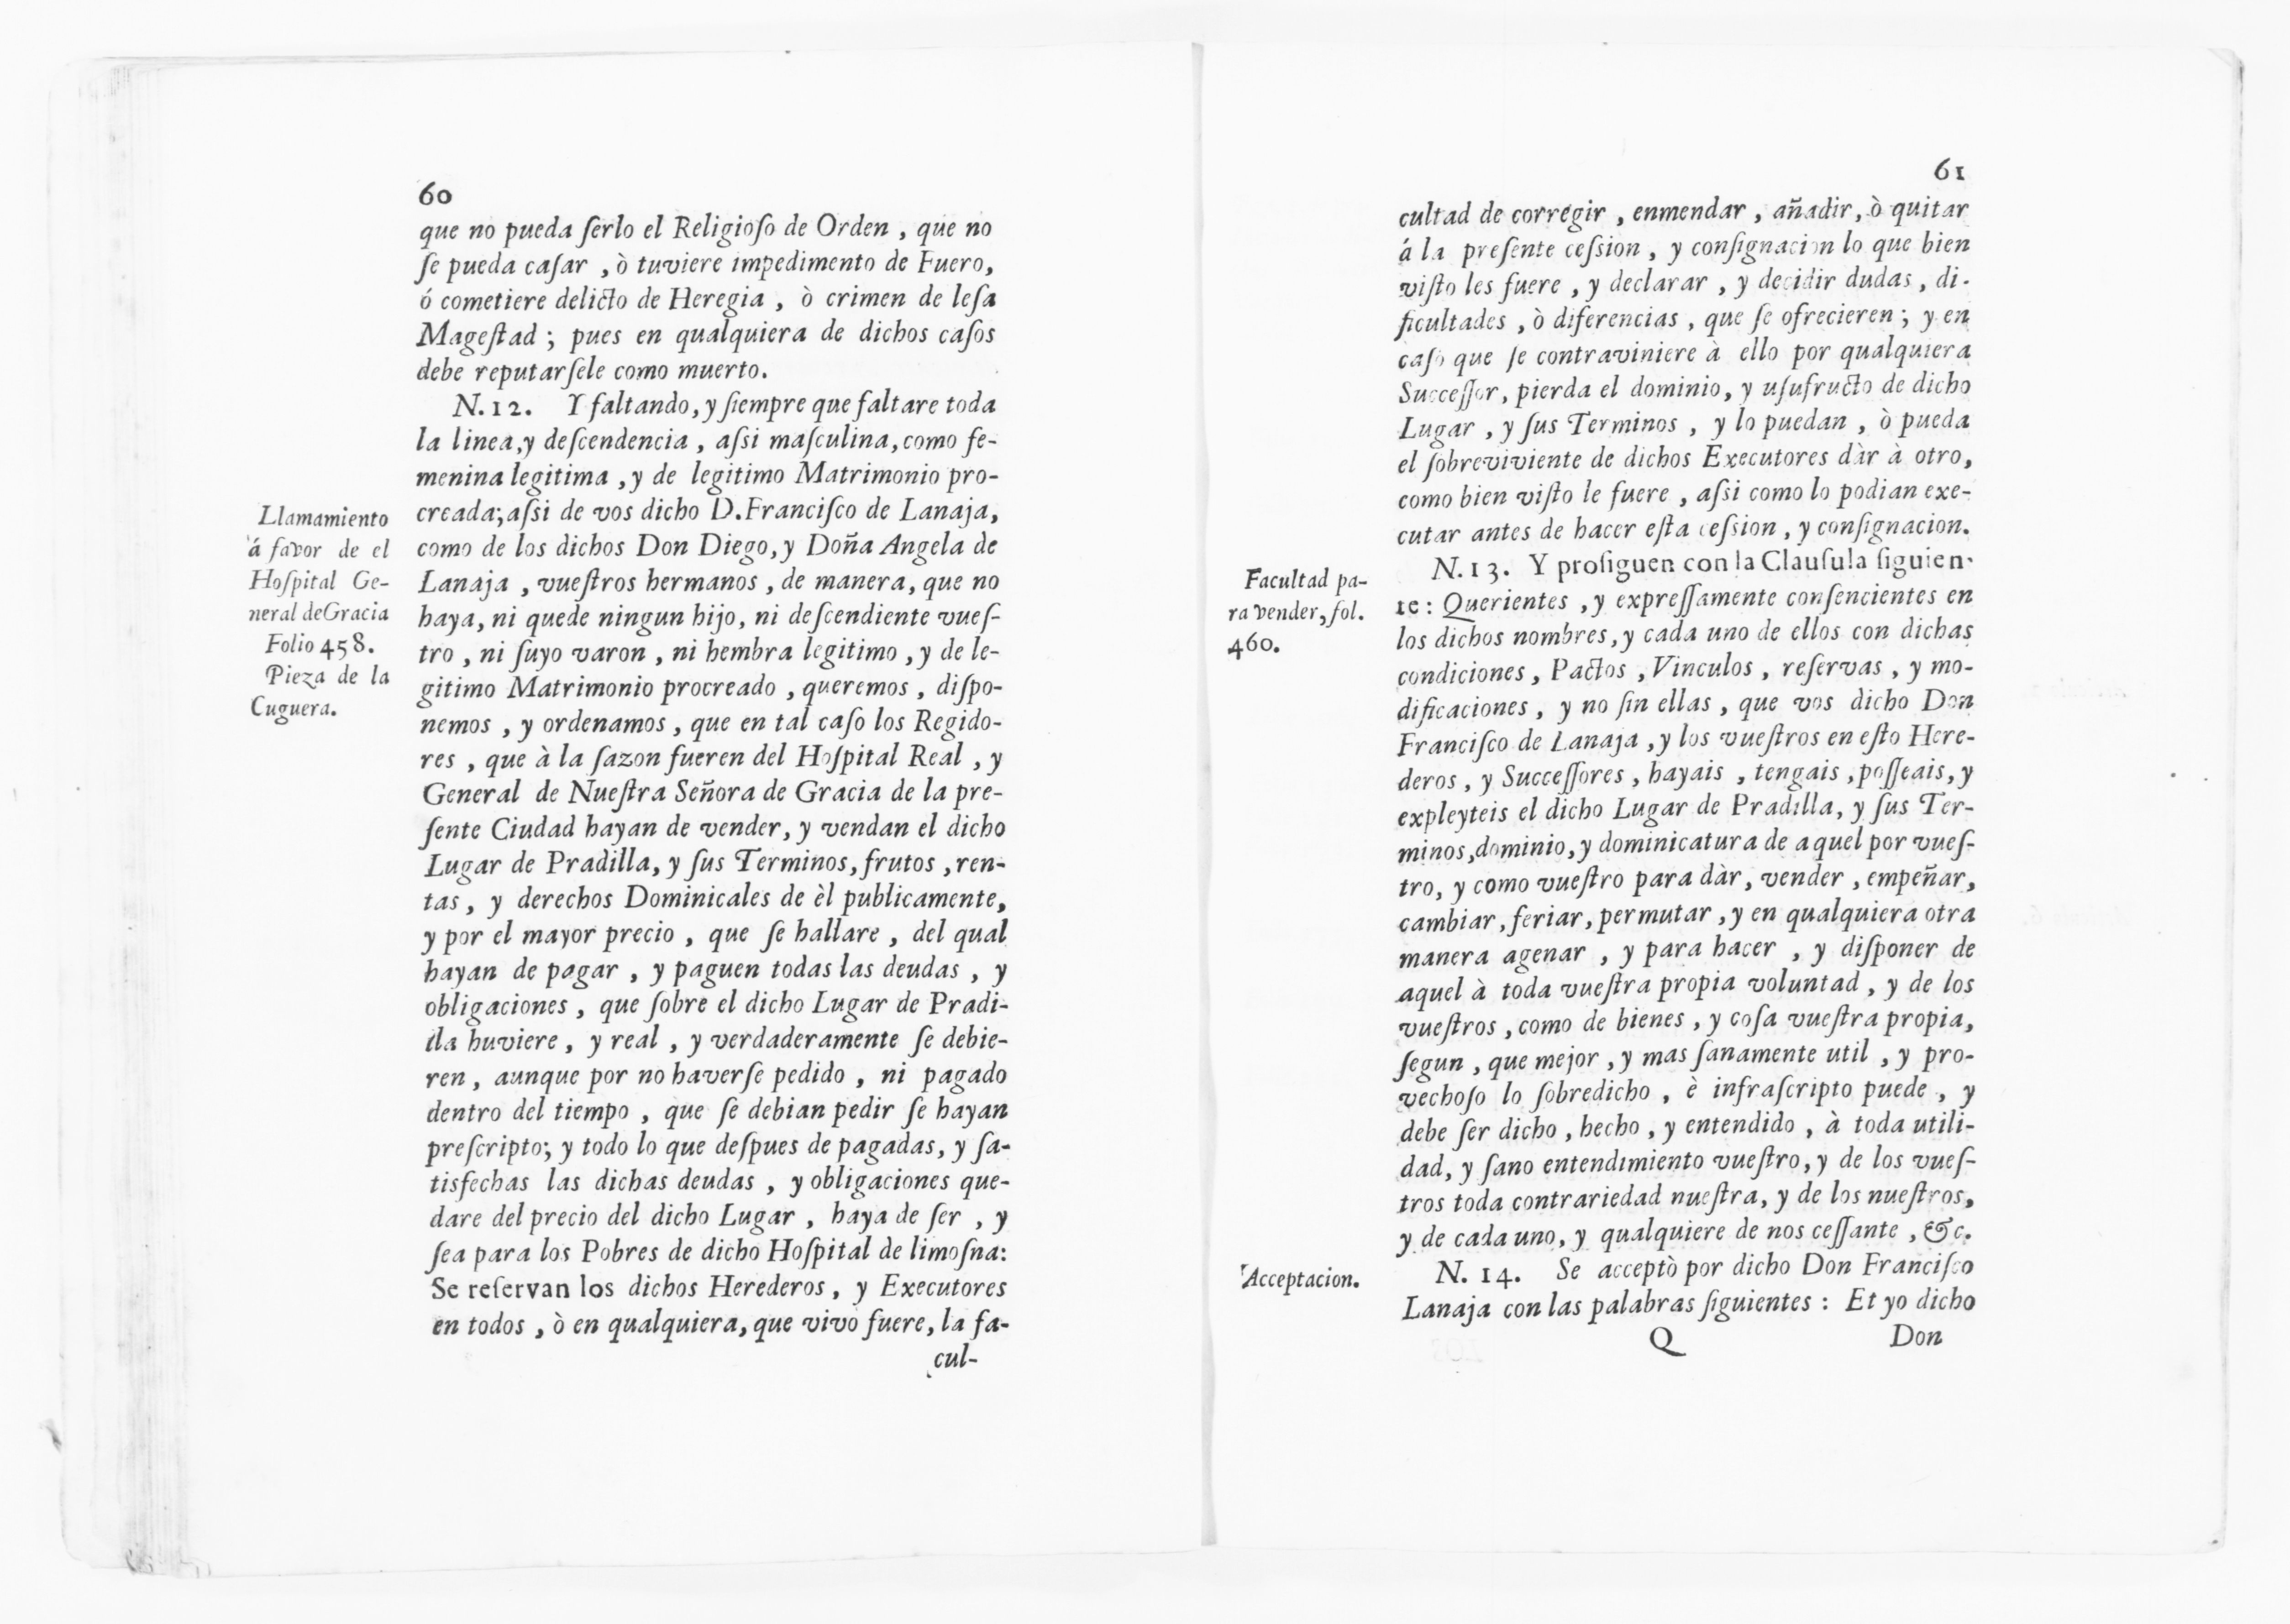 60
que no pueda ſerlo el Religioſo de Orden , que no
ſe pueda caſar , ò tuviere impedimento de Fuero,
ó cometiere delicto de Heregia , ò crimen de leſa
Mageſtad ; pues en qualquiera de dichos caſos
debe reputarſele como muerto.
N. 12. Y faltando, y ſiempre que faltare toda
la linea,y deſcendencia , aſsi maſculina, como fe-
menina legitima , y de legitimo Matrimonio pro-
creada; aſsi de vos dicho D. Franciſco de Lanaja,
como de los dichos Don Diego, y Doña Angela de
Lanaja , vueſtros hermanos , de manera, que no
haya, ni quede ningun hijo, ni deſcendiente vueſ-
tro , ni ſuyo varon , ni hembra legitimo , y de le-
gitimo Matrimonio procreado , queremos , diſpo-
nemos , y ordenamos , que en tal caſo los Regido-
res , que à la ſazon fueren del Hoſpital Real , y
General de Nueſtra Señora de Gracia de la pre-
ſente Ciudad hayan de vender, y vendan el dicho
Lugar de Pradilla, y ſus Terminos, frutos , ren-
tas , y derechos Dominicales de èl publicamente,
y por el mayor precio , que ſe hallare , del qual
hayan de pagar , y paguen todas las deudas , y
obligaciones , que ſobre el dicho Lugar de Pradi-
lla huviere , y real , y verdaderamente ſe debie-
ren , aunque por no haverſe pedido , ni pagado
dentro del tiempo , que ſe debian pedir ſe hayan
preſcripto; y todo lo que deſpues de pagadas, y ſa-
tisfechas las dichas deudas , y obligaciones que-
dare del precio del dicho Lugar , haya de ſer , y
ſea para los Pobres de dicho Hoſpital de limoſna:
Se reſervan los dichos Herederos, y Executores
en todos , ò en qualquiera, que vivo fuere, la fa-
cul-
Llamamiento
á favor de el
Hoſpital Ge-
neral de Gracia
Folio 458.
Pieza de la
Cuguera.
61
cultad de corregir , enmendar , añadir, ò quitar
á la preſente ceſsion , y conſignacion lo que bien
viſto les fuere , y declarar , y decidir dudas , di-
ficultades , ò diferencias , que ſe ofrecieren ; y en
caſo que ſe contraviniere à ello por qualquiera
Succeſſor, pierda el dominio, y uſufructo de dicho
Lugar , y ſus Terminos , y lo puedan , ò pueda
el ſobreviviente de dichos Executores dàr à otro,
como bien viſto le fuere , aſsi como lo podian exe-
cutar antes de hacer eſta ceſsion , y conſignacion.
N. 13. Y proſiguen con la Clauſula ſiguien-
te: Querientes , y expreſſamente conſencientes en
los dichos nombres, y cada uno de ellos con dichas
condiciones , Pactos , Vinculos , reſervas , y mo-
dificaciones , y no ſin ellas , que vos dicho Don
Franciſco de Lanaja , y los vueſtros en eſto Here-
deros , y Succeſſores , hayais , tengais , poſſeais, y
expleyteis el dicho Lugar de Pradilla, y ſus Ter-
minos, dominio, y dominicatura de aquel por vueſ-
tro, y como vueſtro para dàr, vender , empeñar,
cambiar, feriar, permutar , y en qualquiera otra
manera agenar , y para hacer , y diſponer de
aquel à toda vueſtra propia voluntad , y de los
vueſtros , como de bienes , y coſa vueſtra propia,
ſegun , que mejor , y mas ſanamente util , y pro-
vechoſo lo ſobredicho , è infraſcripto puede , y
debe ſer dicho , hecho , y entendido , à toda utili-
dad, y ſano entendimiento vueſtro, y de los vueſ-
tros toda contrariedad nueſtra, y de los nueſtros,
y de cada uno, y qualquiere de nos ceſſante , &c.
N. 14. Se acceptò por dicho Don Franciſco
Lanaja con las palabras ſiguientes : Et yo dicho
Q Don
Facultad pa-
ra vender, fol.
460.
Acceptacion.